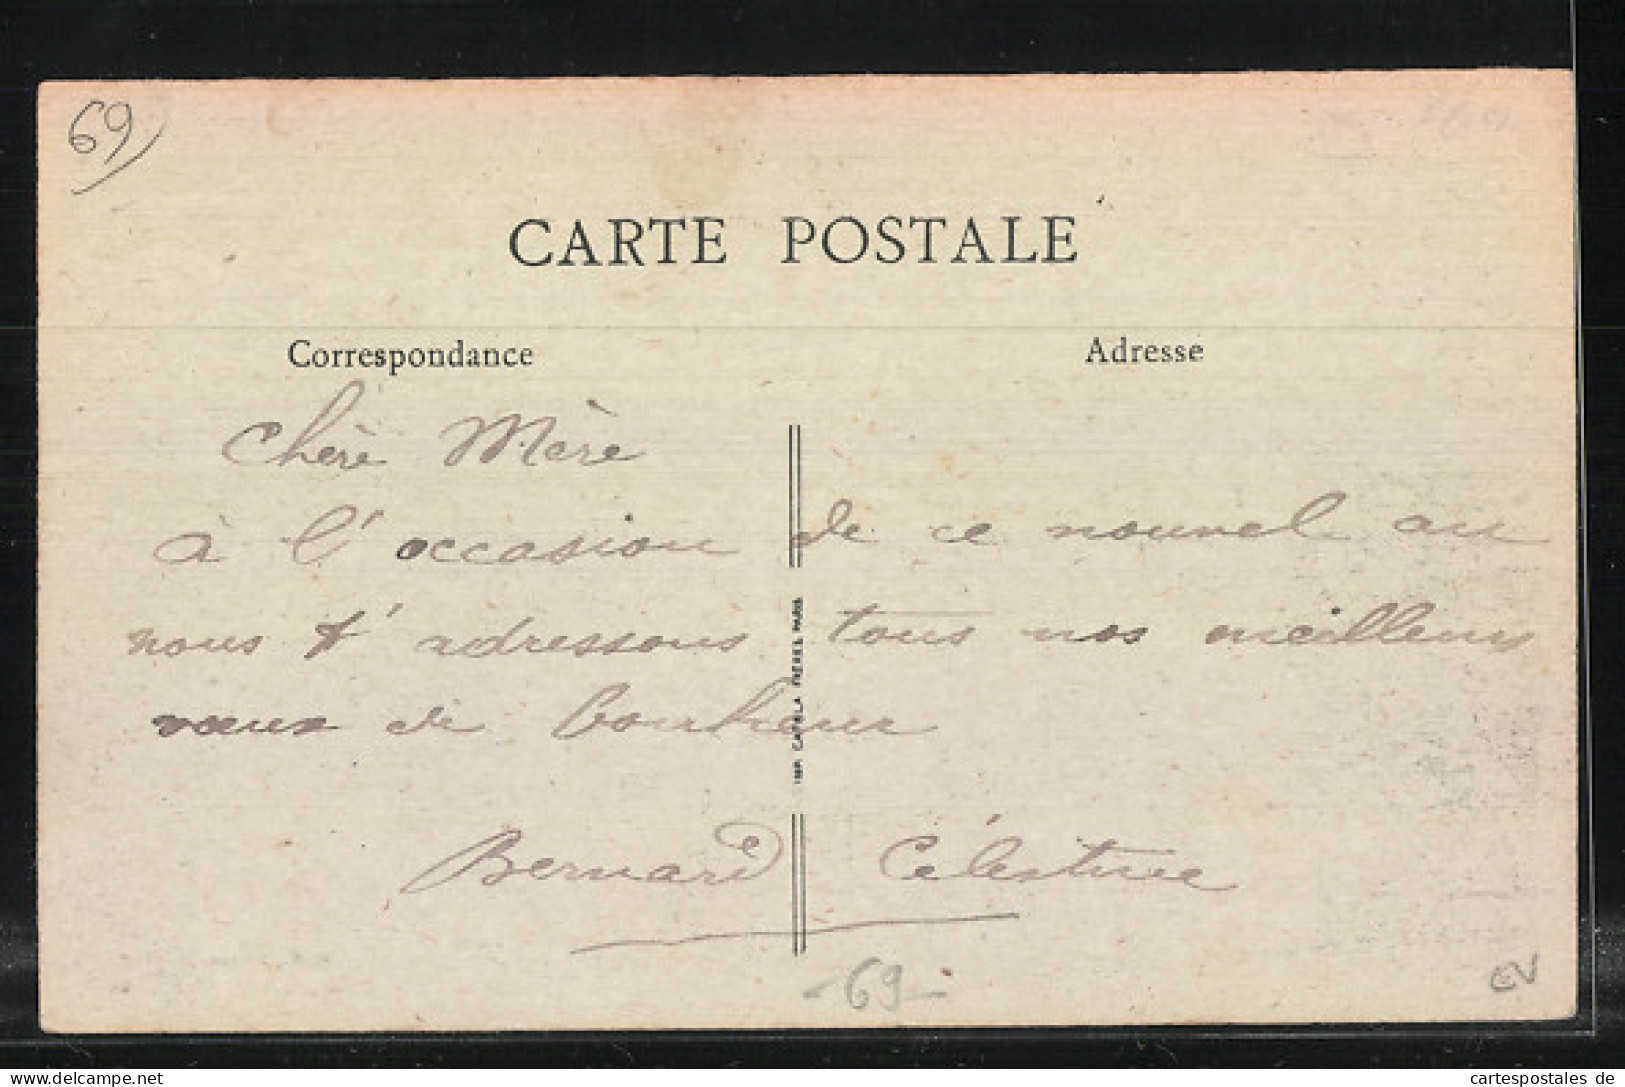 69
CARTE POSTALE
Correspondance
Adresse
Chère Mère
à l'occasion de ce nouvel an
nous t'adressons tous nos meilleurs
vœux de bonheur
Bernard Célestine
IMP. CATALA FRÈRES, PARIS
-69-
EV
www.delcampe.net
cartespostales de